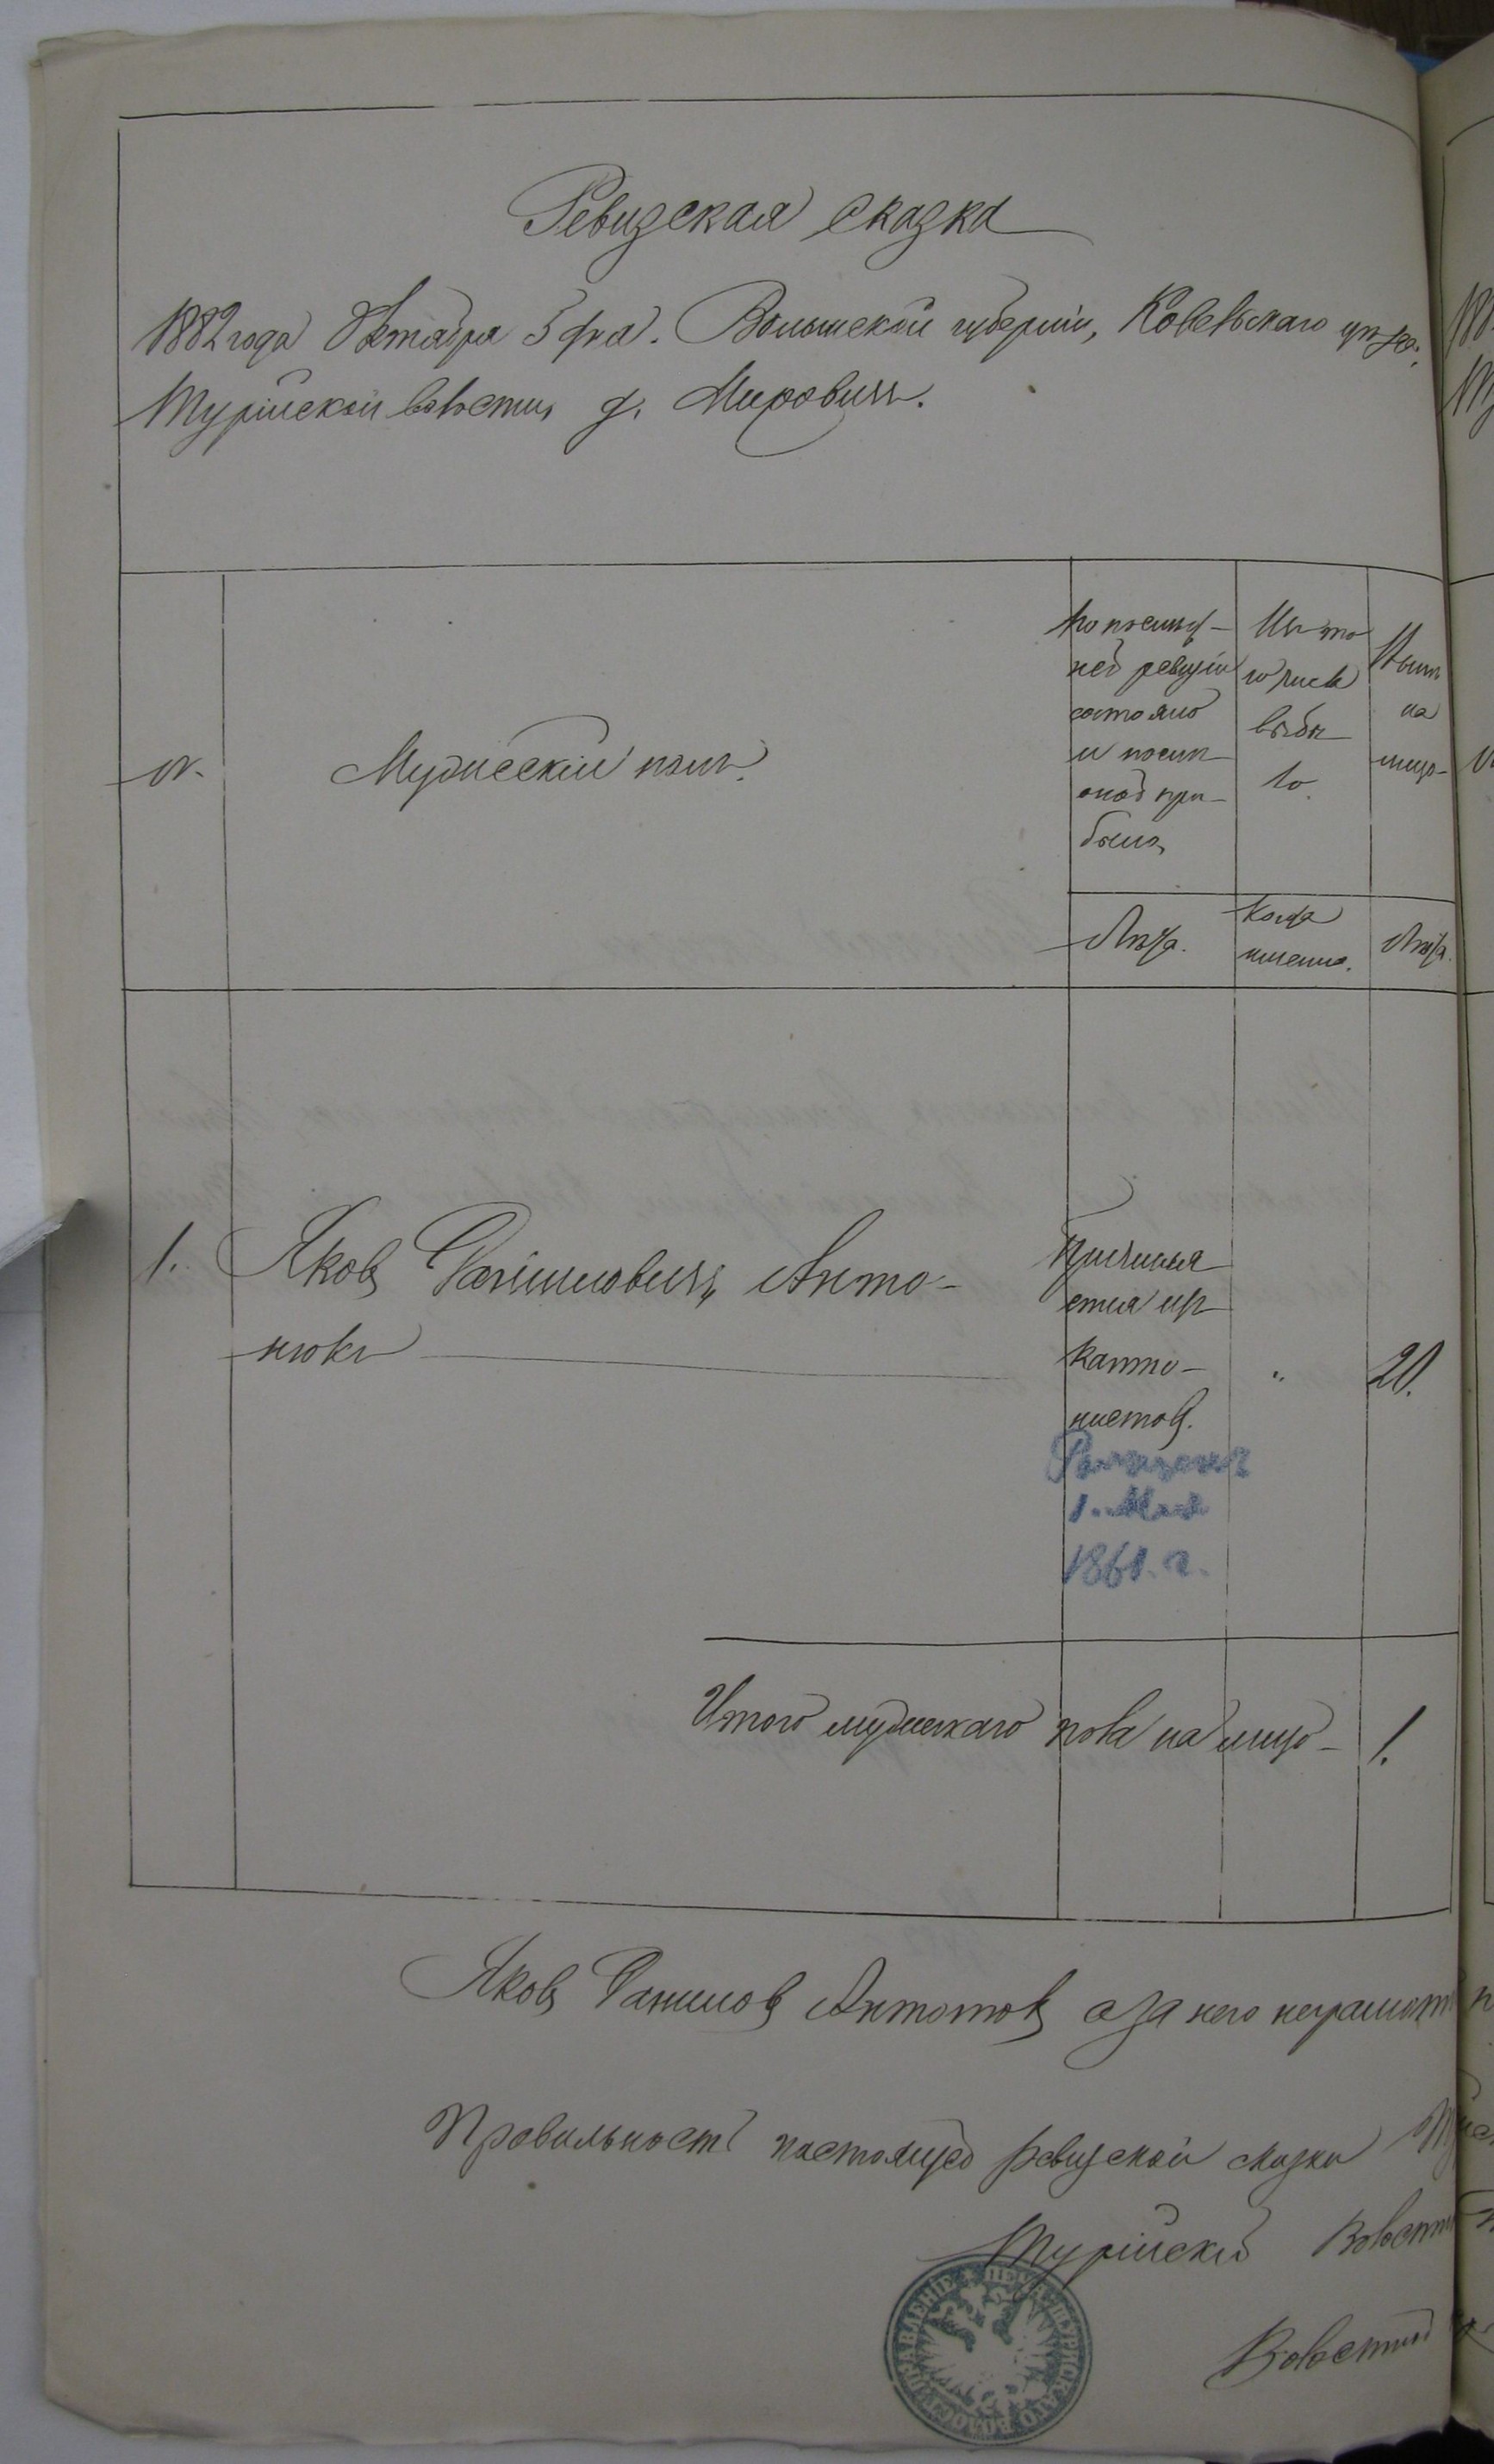 Ревизская сказка
1882 года Октября 5 дня. Волынской губерніи, Ковельскаго уѣзд.
Турійской волости, д. Мировичи.
№. Мужескій полъ.
По послѣд-
ней ревизіи
состояло
и послѣ
оной при-
было
Изъ то
го числа
выбы
ло.
Нынѣ
на
лицо
Лѣта.
Когда
именно.
Лѣта.
1. Яковъ Даниловичъ Анто-
нюкъ
Причисля
ется изъ
канто-
нистовъ.
" 20.
1. Мая
1861. г.
Итого мужескаго пола на лицо 1.
Яковъ Даниловъ Антонюкъ а за него неграмотн
Правильность настоящей ревизской сказки
Турійскій Волостн
Волостной